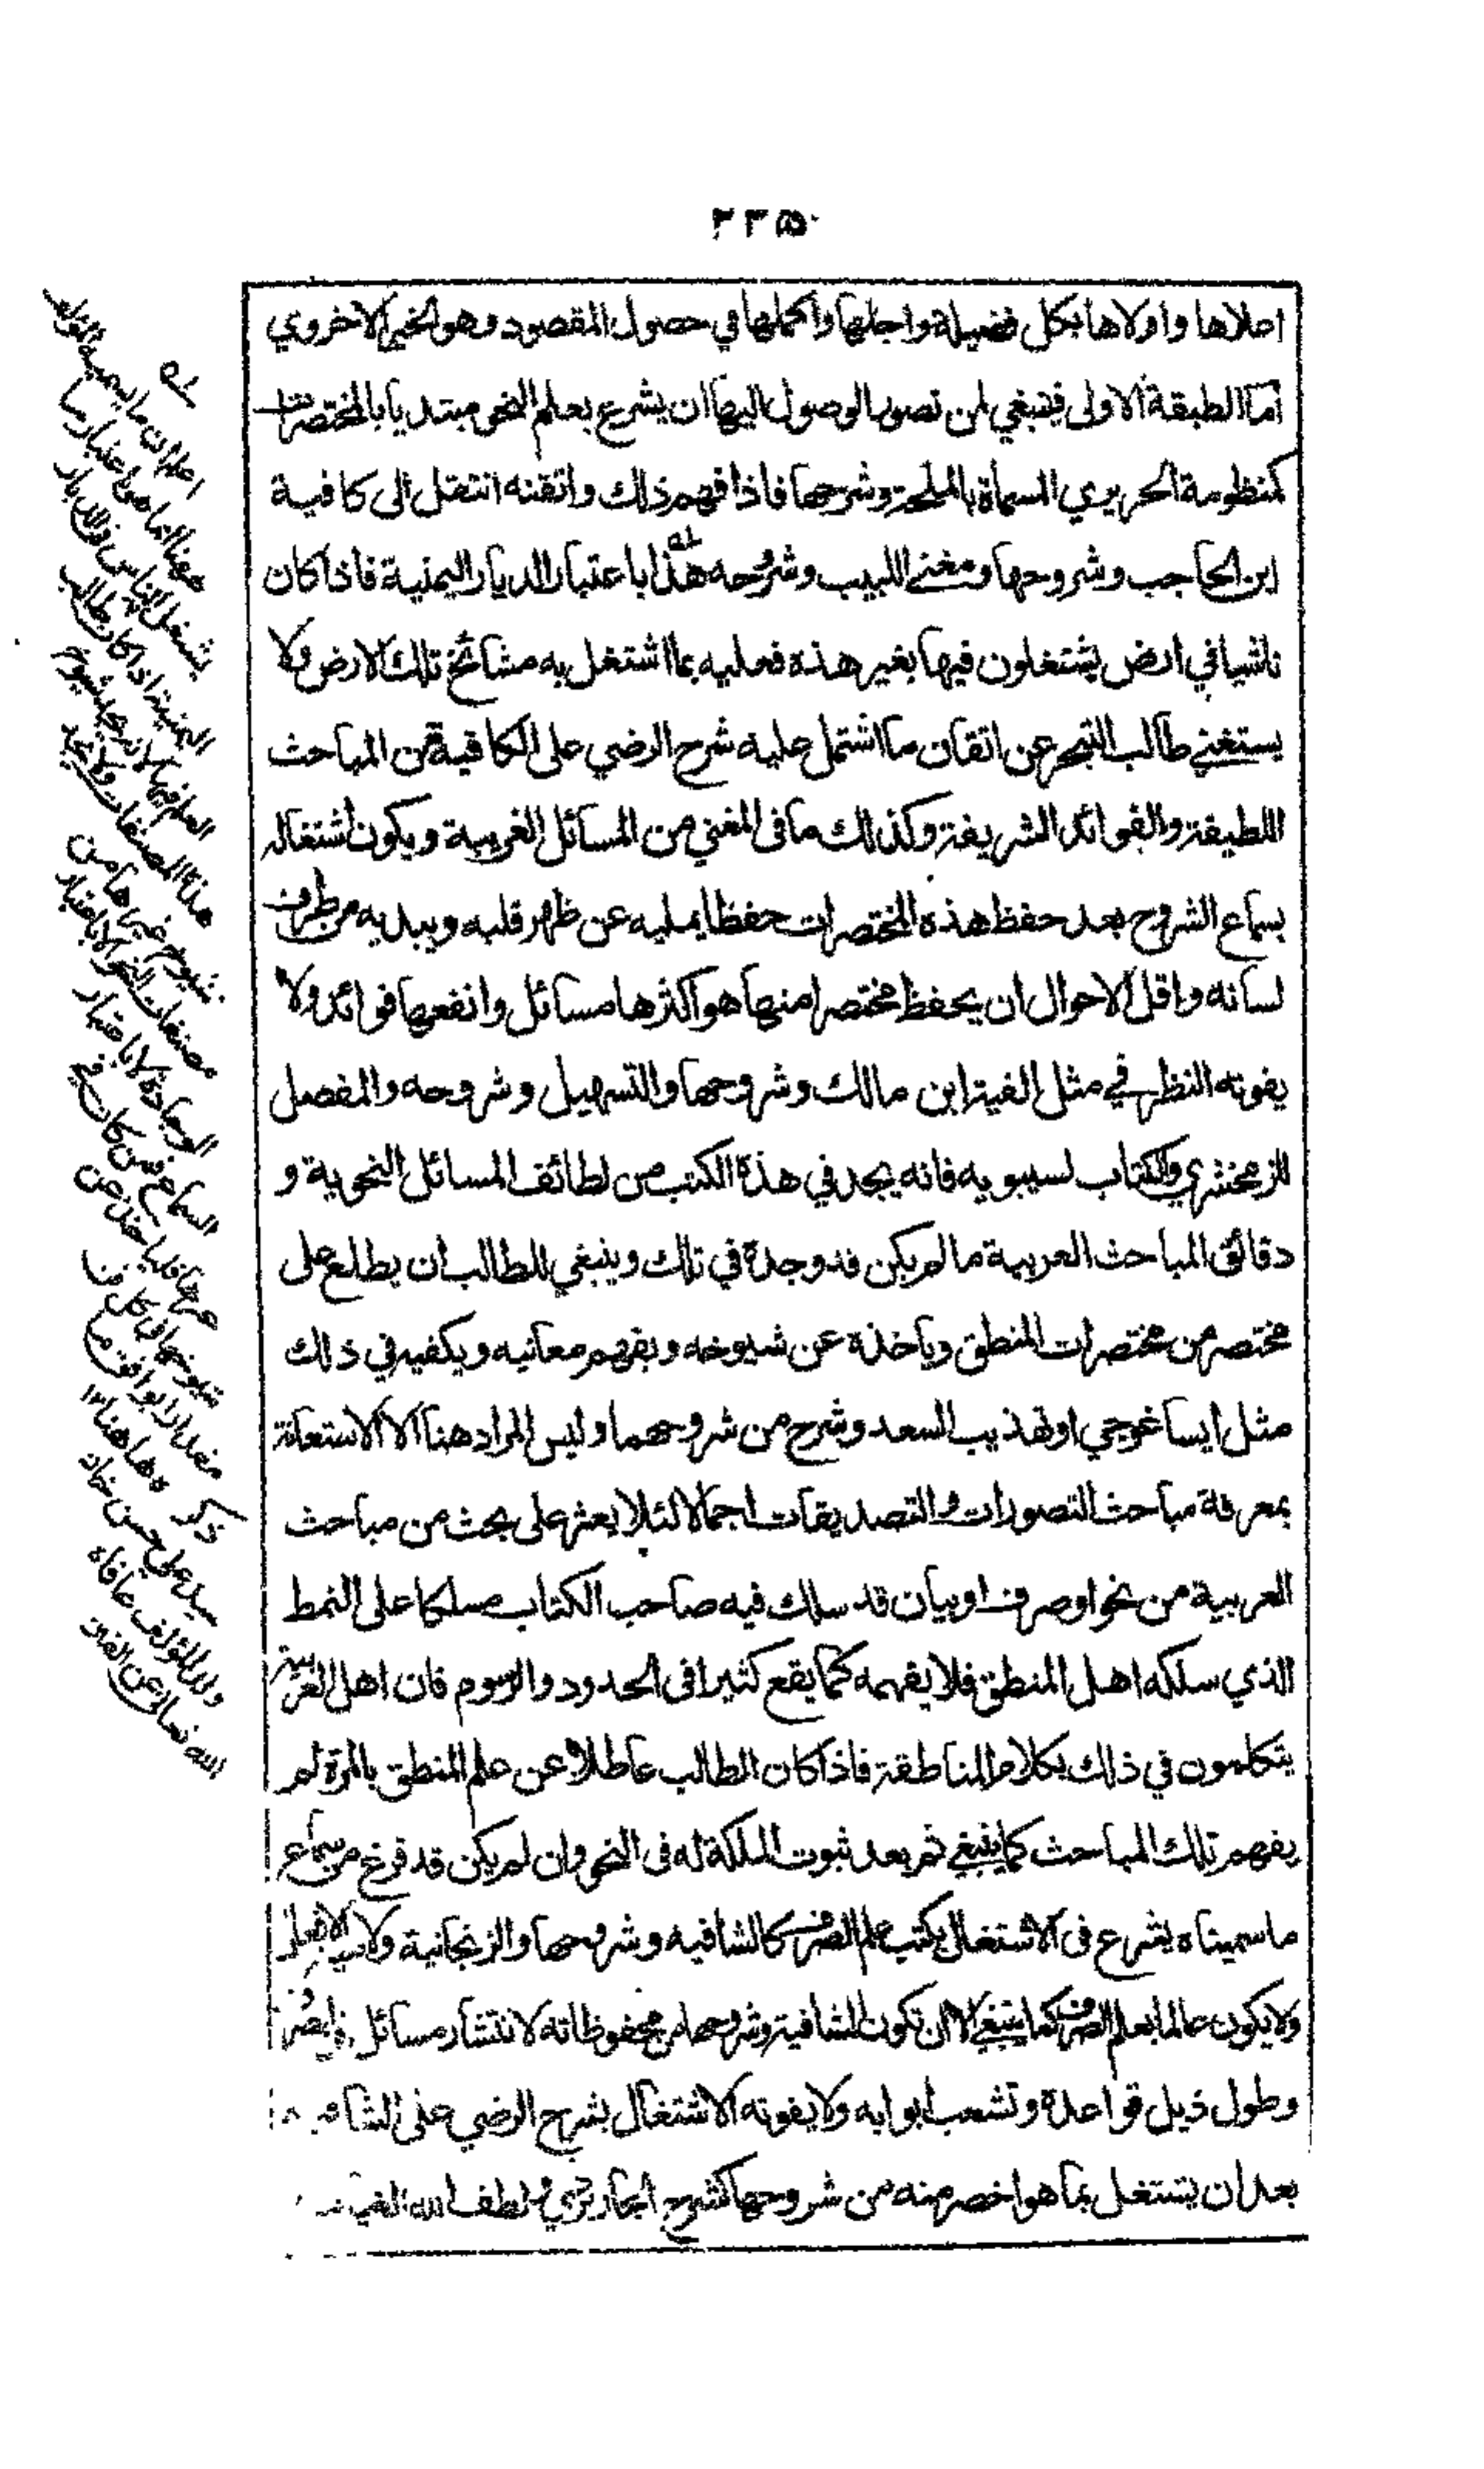 ٢٣٥
اعلاها واولاها بكل فضيلة واجلها واكملها في حصول المقصود وهو الخير الاخروي
اما الطبقة الاولى فينبغي لمن تصور الوصول اليها ان يشرع بعلم النحو مبتديا بالمختصرات
كمنظومة الحريري المسماة بالملحة وشرحها فاذا فهم ذلك واتقنه انتقل الى كافية
ابن الحاجب وشروحها ومغني اللبيب وشروحه هذا باعتبار الديار اليمنية فاذا كان
ناشيا في ارض يشتغلون فيها بغير هذه فعليه بما اشتغل به مشائخ تلك الارض ولا
يستغني طالب التبحر عن اتقان ما اشتمل عليه شرح الرضي على الكافية من المباحث
اللطيفة والفوائد الشريفة وكذلك ما في المغني من المسائل الغريبة ويكون اشتغاله
بسماع الشروح بعد حفظ هذه المختصرات حفظا يمليه عن ظهر قلبه ويبديه من طرف
لسانه واقل الاحوال ان يحفظ مختصرا منها هو اكثرها مسائل وانفعها فوائد ولا
يفوته النظر في مثل الفية ابن مالك وشروحها والتسهيل وشروحه والمفصل
للزمخشري والكتاب لسيبويه فانه يجد في هذة الكتب من لطائف المسائل النحوية و
دقائق المباحث العربية ما لم يكن قد وجدة في تلك وينبغي للطالب ان يطلع على
مختصر من مختصرات المنطق وياخذة عن شيوخه ويفهم معانيه ويكفيه في ذلك
مثل ايساغوجي او تهذيب السعد وشرح من شروحهما وليس المراد هنا الا الاستعانة
بمعرفة مباحث التصورات والتصديقات اجمالا لئلا يعثر على بحث من مباحث
العربية من نحو او صرف او بيان قد سلك فيه صاحب الكتاب مسلكا على النمط
الذي سلكه اهل المنطق فلا يفهمه كما يقع كثيرا في الحدود والرسوم فان اهل العربية
يتكلمون في ذلك بكلام المناطقة فاذا كان الطالب عاطلا عن علم المنطق بالمرة لم
يفهم تلك المباحث كما ينبغي ثم بعد ثبوت الملكة له في النحو وان لم يكن قد فرغ من سماع
ما سميناه يشرع في الاشتغال بكتب علم الصرف كالشافيه وشروحها والزنجانية ولامية الافعال
ولا يكون عالما بعلم الصرف كما ينبغي الا ان تكون الشافية وشروحها من محفوظاته لانتشار مسائل
وطول ذيل قواعدة وتشعب ابوابه ولا يفوته الاشتغال بشرح الرضي على
بعد ان يشتغل بما هو اخصر منه من شروحها كشرح الجاربردي ولطف الله
اعلم ان ما يسميه المؤلف
ههنا انما هو باعتبار ما
يشتغل الناس في الديار
اليمنية اذا كان طالب
هذه المصنفات
شيوخ غيرها من
مصنفات النحو
السماع فمن كان في
ذكره هاهنا ١٢
سيد علي حسن خان
ولد المؤلف عافاه
الله تعالى عن